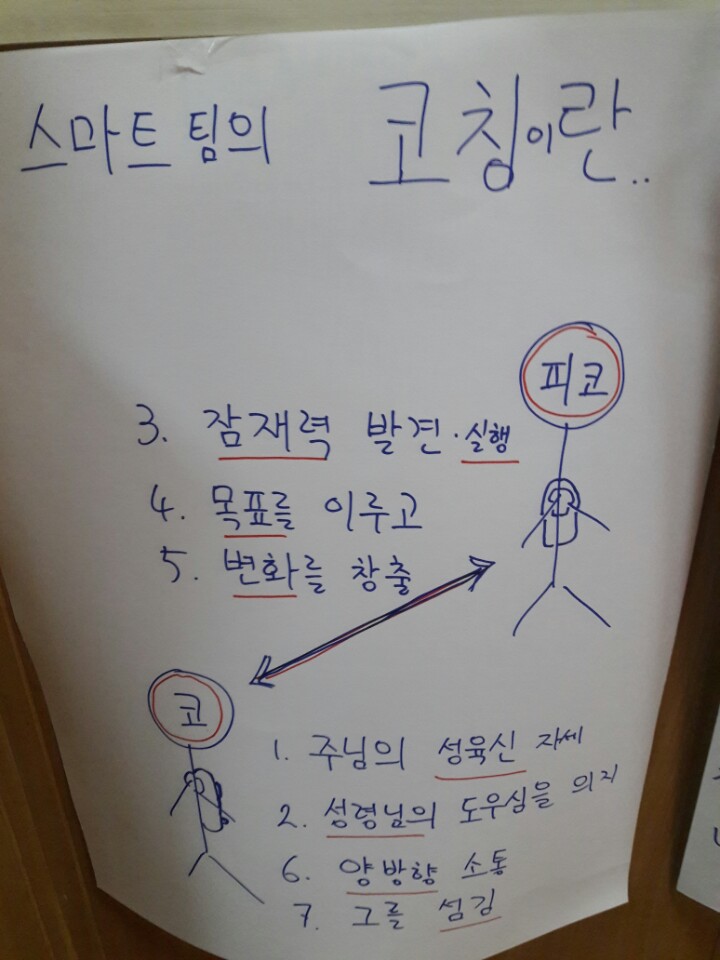 스마트 팀의 코칭이란..
피코
3. 잠재력 발견·실행
4. 목표를 이루고
5. 변화를 창출
코
1. 주님의 성육신 자세
2. 성령님의 도우심을 의지
6. 양방향 소통
7. 그를 섬김